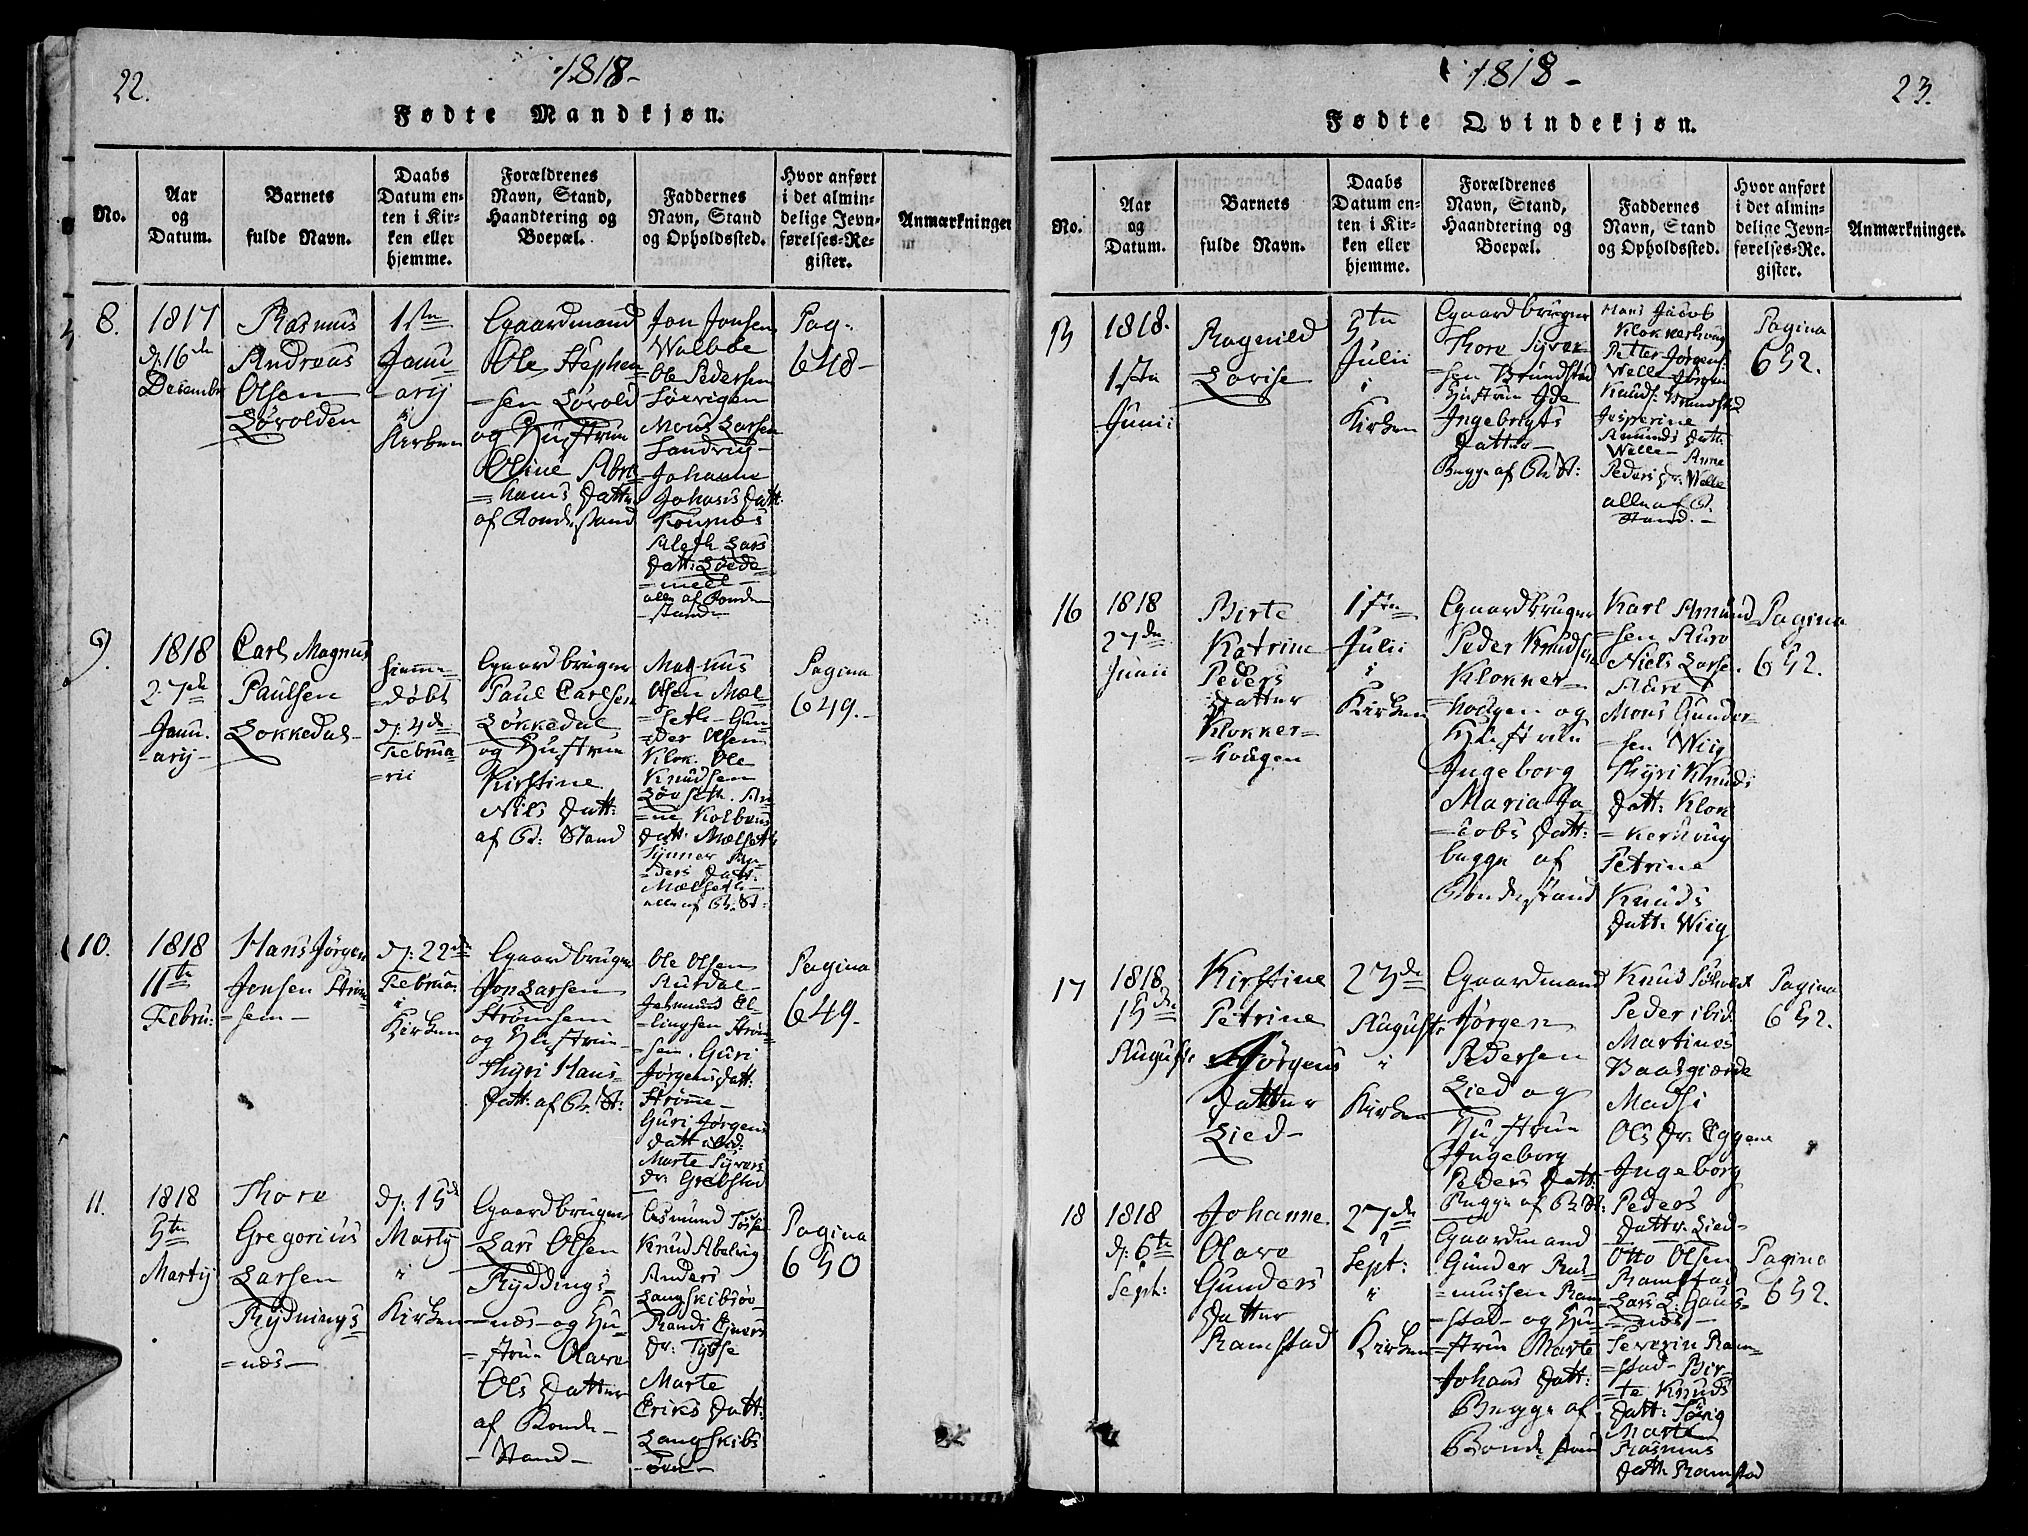 22.
1818-
Fødte Mandkjøn.
No.
Aar
og
Datum.
Barnets
fulde Navn.
Daabs
Datum en-
ten i Kir-
ken eller
hjemme.
Forældrenes
Navn, Stand,
Haandtering og
Boepæl.
Faddernes
Navn, Stand
og Opholdssted.
Hvor anført
i det almin-
delige Jevn-
førelses-Re-
gister.
Anmærkninger
8.
1817
d: 16de
Decembr
Rasmus
Andreas
Olsen
Løvolden
1ste
Janu
=arij
i
Kirken
Gaardmand
Ole Stephen
=sen Løvold
og Hustrue
Oline Abra
=hams Datter
af Bondestand
Jon Jonsen
Walbøe
Ole Pedersen
Mons Larsen
Landvig-
Johanne
Johans Datt:
Aleth Lars
Datt: Løvde=
alle af Bonde
stande
Pag-
648-
9.
1818
27de
Janu.
=arij-
Carl Magnus
Paulsen
Løkkedal-
hjemme
døbt
d: 4de
Februa
=rii
Gaardbruger
Paul Carlsen
Løkkedal
og Hustrue
Kirstine
Nils Datt:
af B: Stand
Magnus
Olsen Mæl-
=seth- Gun-
=der Olsen
Klok. Ole
Knudsen
Løvseth. An-
=ne Kolbens
Datt: Mælseth
Synner An-
=ders Datt:
Mælseth-
alle af B. St:
Pagina
649.-
10.
1818
11te
Febru:
Hans Jørgen
Jonsen Strøm
=sem-
d: 22de
Februa:
i
Kirken
Gaardbruger
Jon Larsen
Strømsem
og Hustrue-
Thyri Hans-
Datt: af B. St:
Ole Olsen
Rutdal-
Jetmund El-
lingsen Strøm
=sem. Guri
Jørgens Datt:
Strømme-
Guri Jørgens
Datt ibid.
Marte Syvers
Dr: Grebstad
Pagina
649-
11.
1818
5te
Martij
Thore
Gregorius
Larsen
Rydnings-
=næs-
d: 15de
Martij
i
Kirken
Gaardbruger
Lars Olsen
Ryddings-
=næs- og Hu-
=strue Olave
Ols Datter
af Bonde-
-Stand-
Knud Abelvig
Anders
Langskibsøv-
Randi Ejvers
Dr: Tysse
Marte
Eriks Datt:
Langskibs
-øre-
Pagina
650
1818-
23.
Fødte Qvindekjøn.
No.
Aar
og
Datum.
Barnets
fulde Navn.
Daabs
Datum en-
ten i Kir-
ken eller
hjemme.
Forældrenes
Navn, Stand,
Haandtering og
Boepæl.
Faddernes
Navn, Stand
og Opholdssted.
Hvor anført
i det almin-
delige Jevn-
førelses-Re-
gister.
Anmærkninger.
15
1818.
1ste
Junii
Ragnild
Lovise
5te
Julii
i
Kirken
Gaardbruger
Thore Syver
=sen Brundstad
Hustrue Ide
Ingebrigts
Datter
Begge af B. St:
Hans Jacob
Klokkerhaug
Petter Jørgens:
Welle- Jørgen
Knuds: Brundstad
Jesperine
Amunds Datter
Welle- Anne
Peders Dr. Welle
alle af B.
Stand.-
Pagina
652.
16
1818
27de
Junii
Birte
Katrine
Peders
Datter
Klokker-
=hougen
1ste
Julii
i
Kirken
Gaardbruger
Peder Knudsen
Klokker-
=hougen og
Hustrue
Ingeborg
Maria Ja-
=cobs Datt:
begge af
Bondestand
Karl Amund-
=sen Aure
Niels Larse.
Aure
Mons Gunder-
=sen Wiig
Thyri Knuds
Datt: Klok
=kerhoug
Petrine
Knuds
Datt: Wiig
Pagina
652.
17
1818
15de
Auguste
Kirstine
Petrine
Jørgens
Datter
Lied-
23de
Auguste
i
Kirken
Gaardmand
Jørgen
Pedersen
Lied og
Hustrue
Ingeborg
Peders Datt:
Begge af B. St:
Knud Søholt
Peder ibid.
Martines
Baasgierde
Madsi
Ols Dr. Eggene
Ingeborg
Peders
Datter. Lied-
Pagina
652.
18
1818
d: 6te
Sept:
Johanne.
Olave
Gunders
Datter
Ramstad
27de
Sept:
i
Kirken
Gaardmand
Gunder Ras-
mussen Ram-
stad- og Hu-
=strue Marte
Johans Datt:
Begge af
Bondestand
Otto Olsen
Ramstad
Lars L: Gaus-
=næs-
Severin Ram-
=stad- Bir-
=te Knuds
Datt: Søvig
Marte
Rasmus
Datt. Ramstad
Pagina
652.